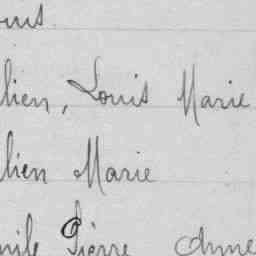 lien, Louis Marie
lien Marie
Pierre Anne